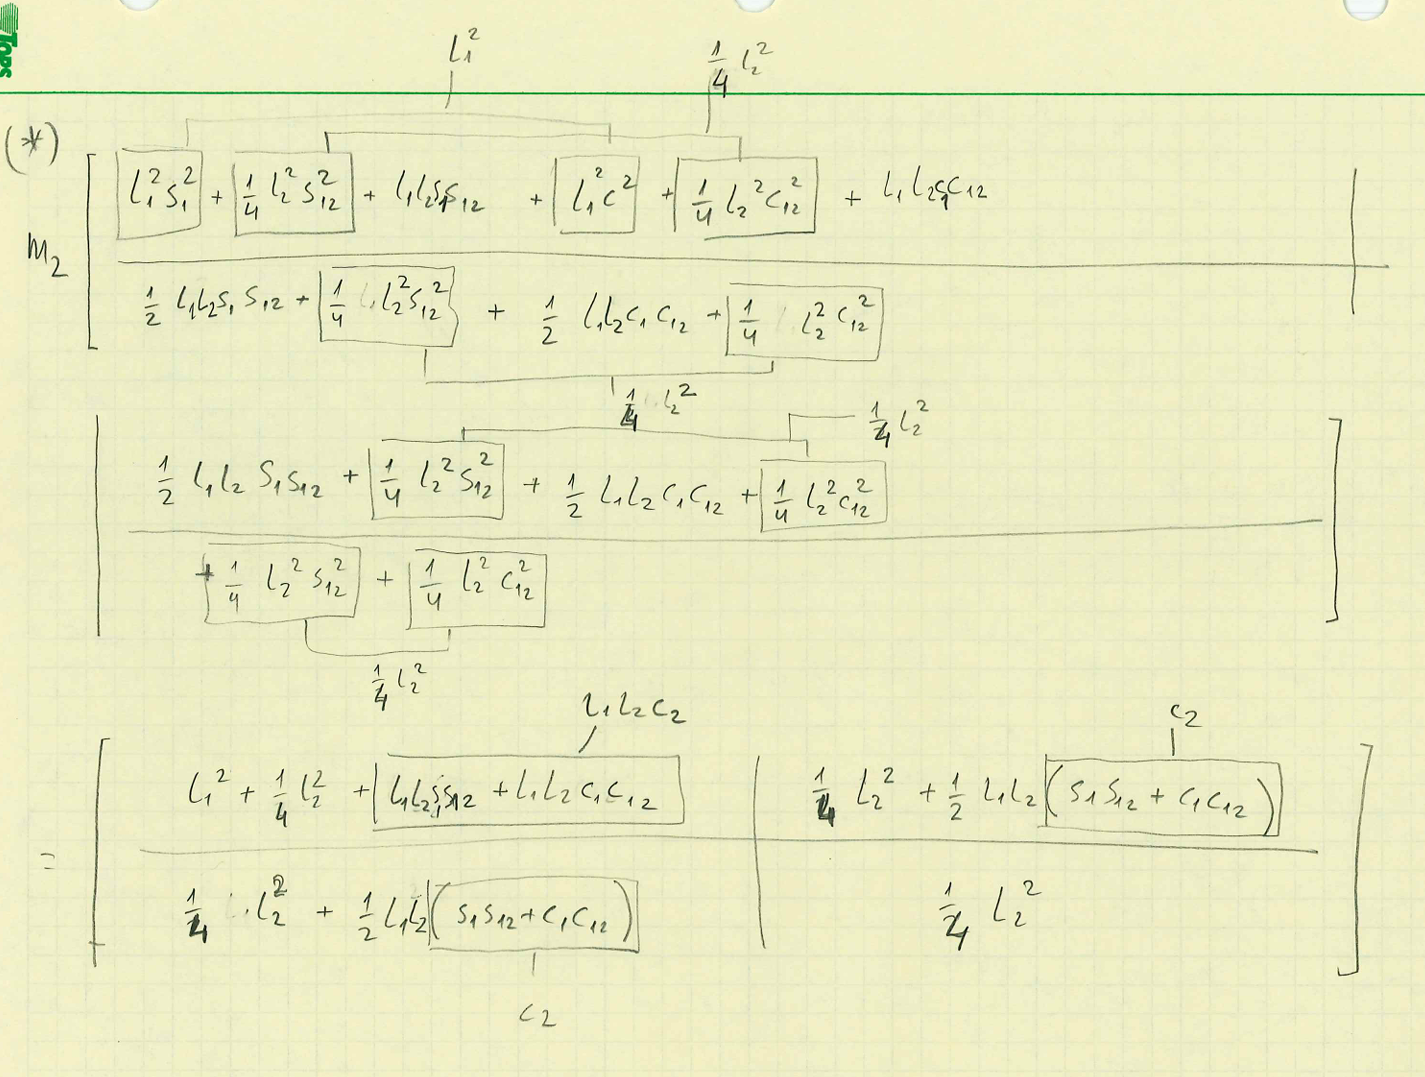 Tops
l₁² ¼ l₂²
(*)
m₂ [ l₁²s₁² + ¼ l₂²s₁₂² + l₁l₂s₁s₁₂ + l₁²c² + ¼ l₂²c₁₂² + l₁l₂c₁c₁₂ |
½ l₁l₂s₁s₁₂ + ¼ l₂²s₁₂² + ½ l₁l₂c₁c₁₂ + ¼ l₂²c₁₂²
¼ l₂² ¼ l₂²
| ½ l₁l₂ s₁s₁₂ + ¼ l₂²s₁₂² + ½ l₁l₂c₁c₁₂ + ¼ l₂²c₁₂² ]
+ ¼ l₂² s₁₂² + ¼ l₂² c₁₂²
¼ l₂²
l₁l₂c₂ c₂
= [ l₁² + ¼ l₂² + l₁l₂s₁s₁₂ + l₁l₂c₁c₁₂ | ¼ l₂² + ½ l₁l₂ (s₁s₁₂ + c₁c₁₂) ]
¼ l₂² + ½ l₁l₂ (s₁s₁₂ + c₁c₁₂) | ¼ l₂²
c₂